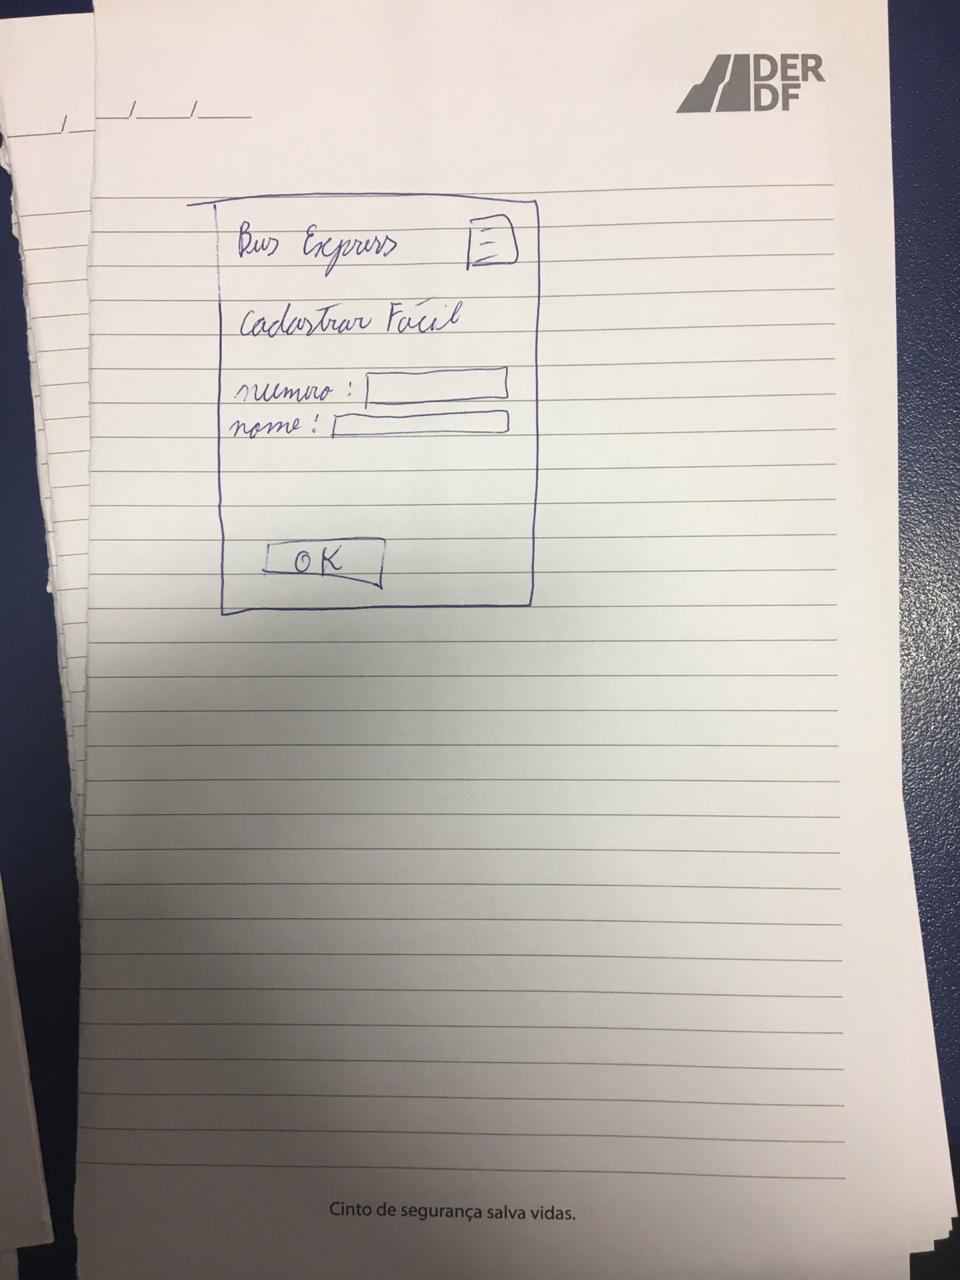 DER
DF
/ /
/
Bus Express
Cadastrar Fácil
numero :
nome :
OK
Cinto de segurança salva vidas.